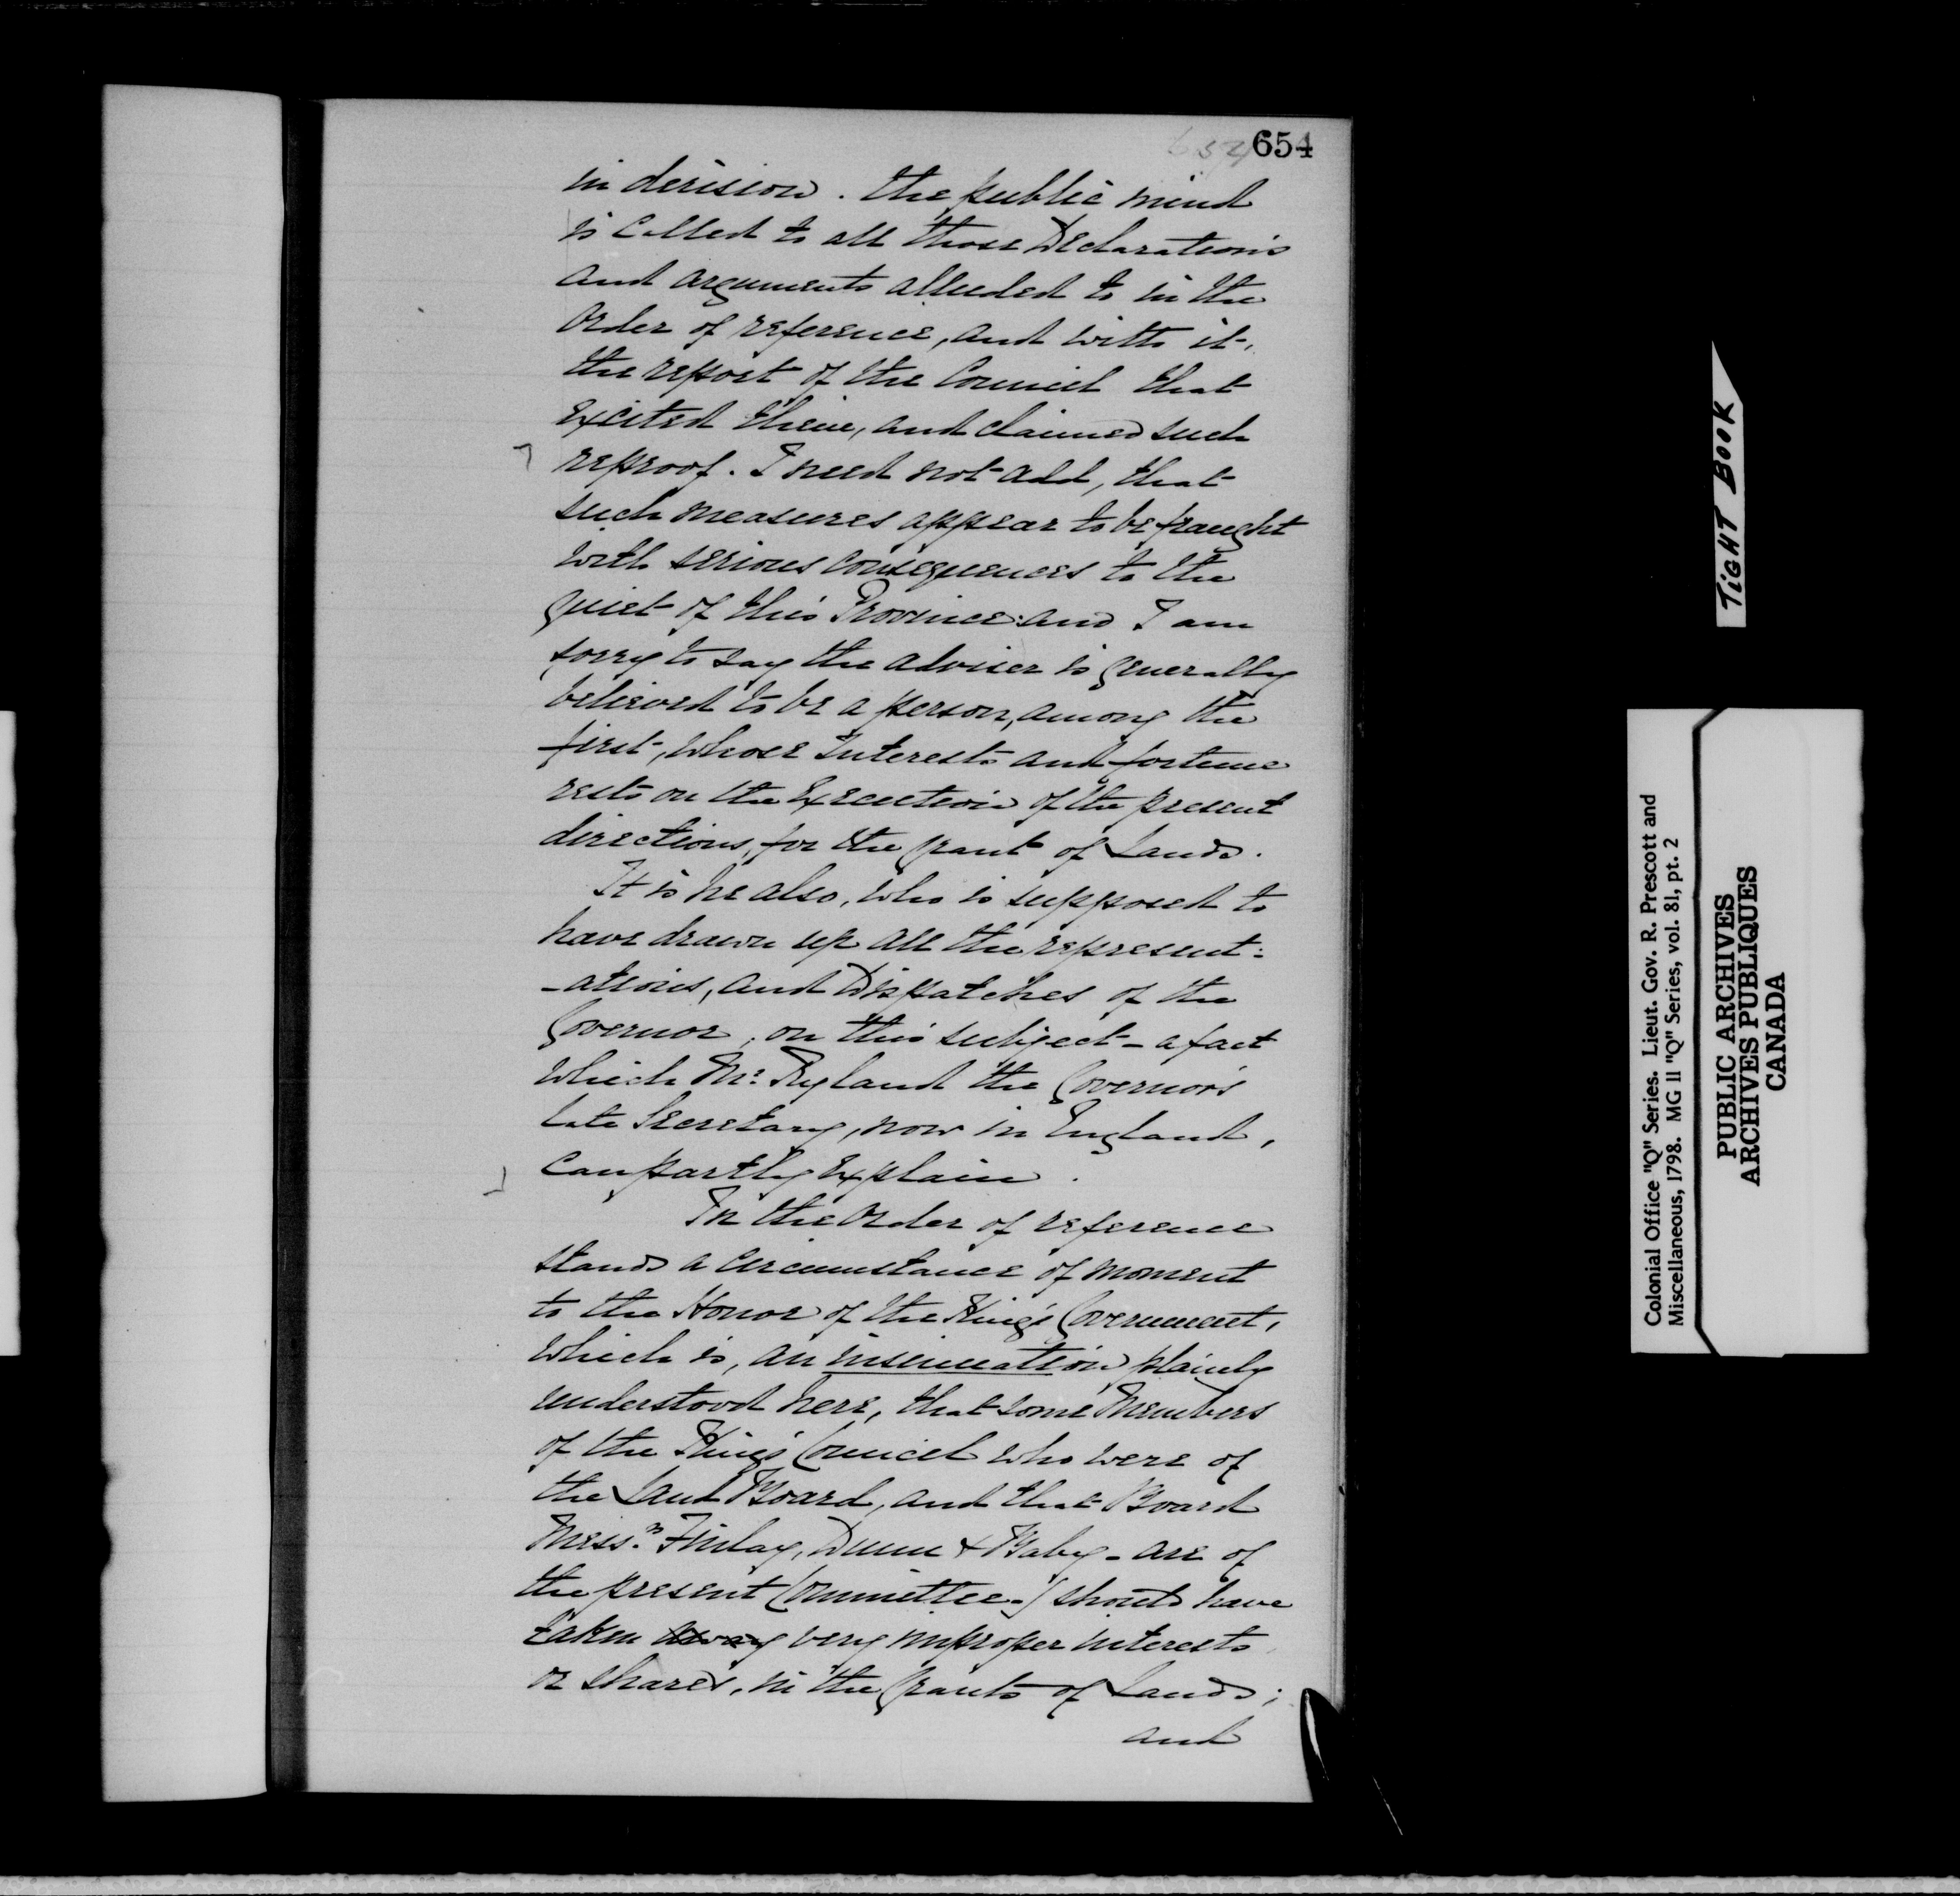 654
654
in derision. the public mind
is called to all those Declarations
and arguments alluded to in the
Order of reference, and with it,
the report of the Council that
excited them, and claimed such
reproof. I need not add, that
such measures appear to be fraught
with serious consequences to the
quiet of this Province: and I am
sorry to say the adviser is generally
believed to be a person, among the
first, whose interests and fortune
rests on the Execution of the present
directions, for the grant of Lands.
It is he also, who is supposed to
have drawn up all the represent:
-ations, and Dispatches of the
Governor, on this subject - a fact
which Mr. Ryland the Governor's
late Secretary, now in England,
can partly explain.
In the Order of reference
stands a circumstance of moment
to the Honor of the King's Government,
which is, an insinuation plainly
understood here, that some Members
of the King's Council who were of
the Land Board, and that Board
Mess.rs Finlay, Dunn & Baby - are of
the present Committee-) should have
taken away very improper interests
or shares, in the grants of Lands;
and
TIGHT BOOK
Colonial Office "Q" Series. Lieut. Gov. R. Prescott and
Miscellaneous, 1798. MG 11 "Q" Series, vol. 81, pt. 2
PUBLIC ARCHIVES
ARCHIVES PUBLIQUES
CANADA